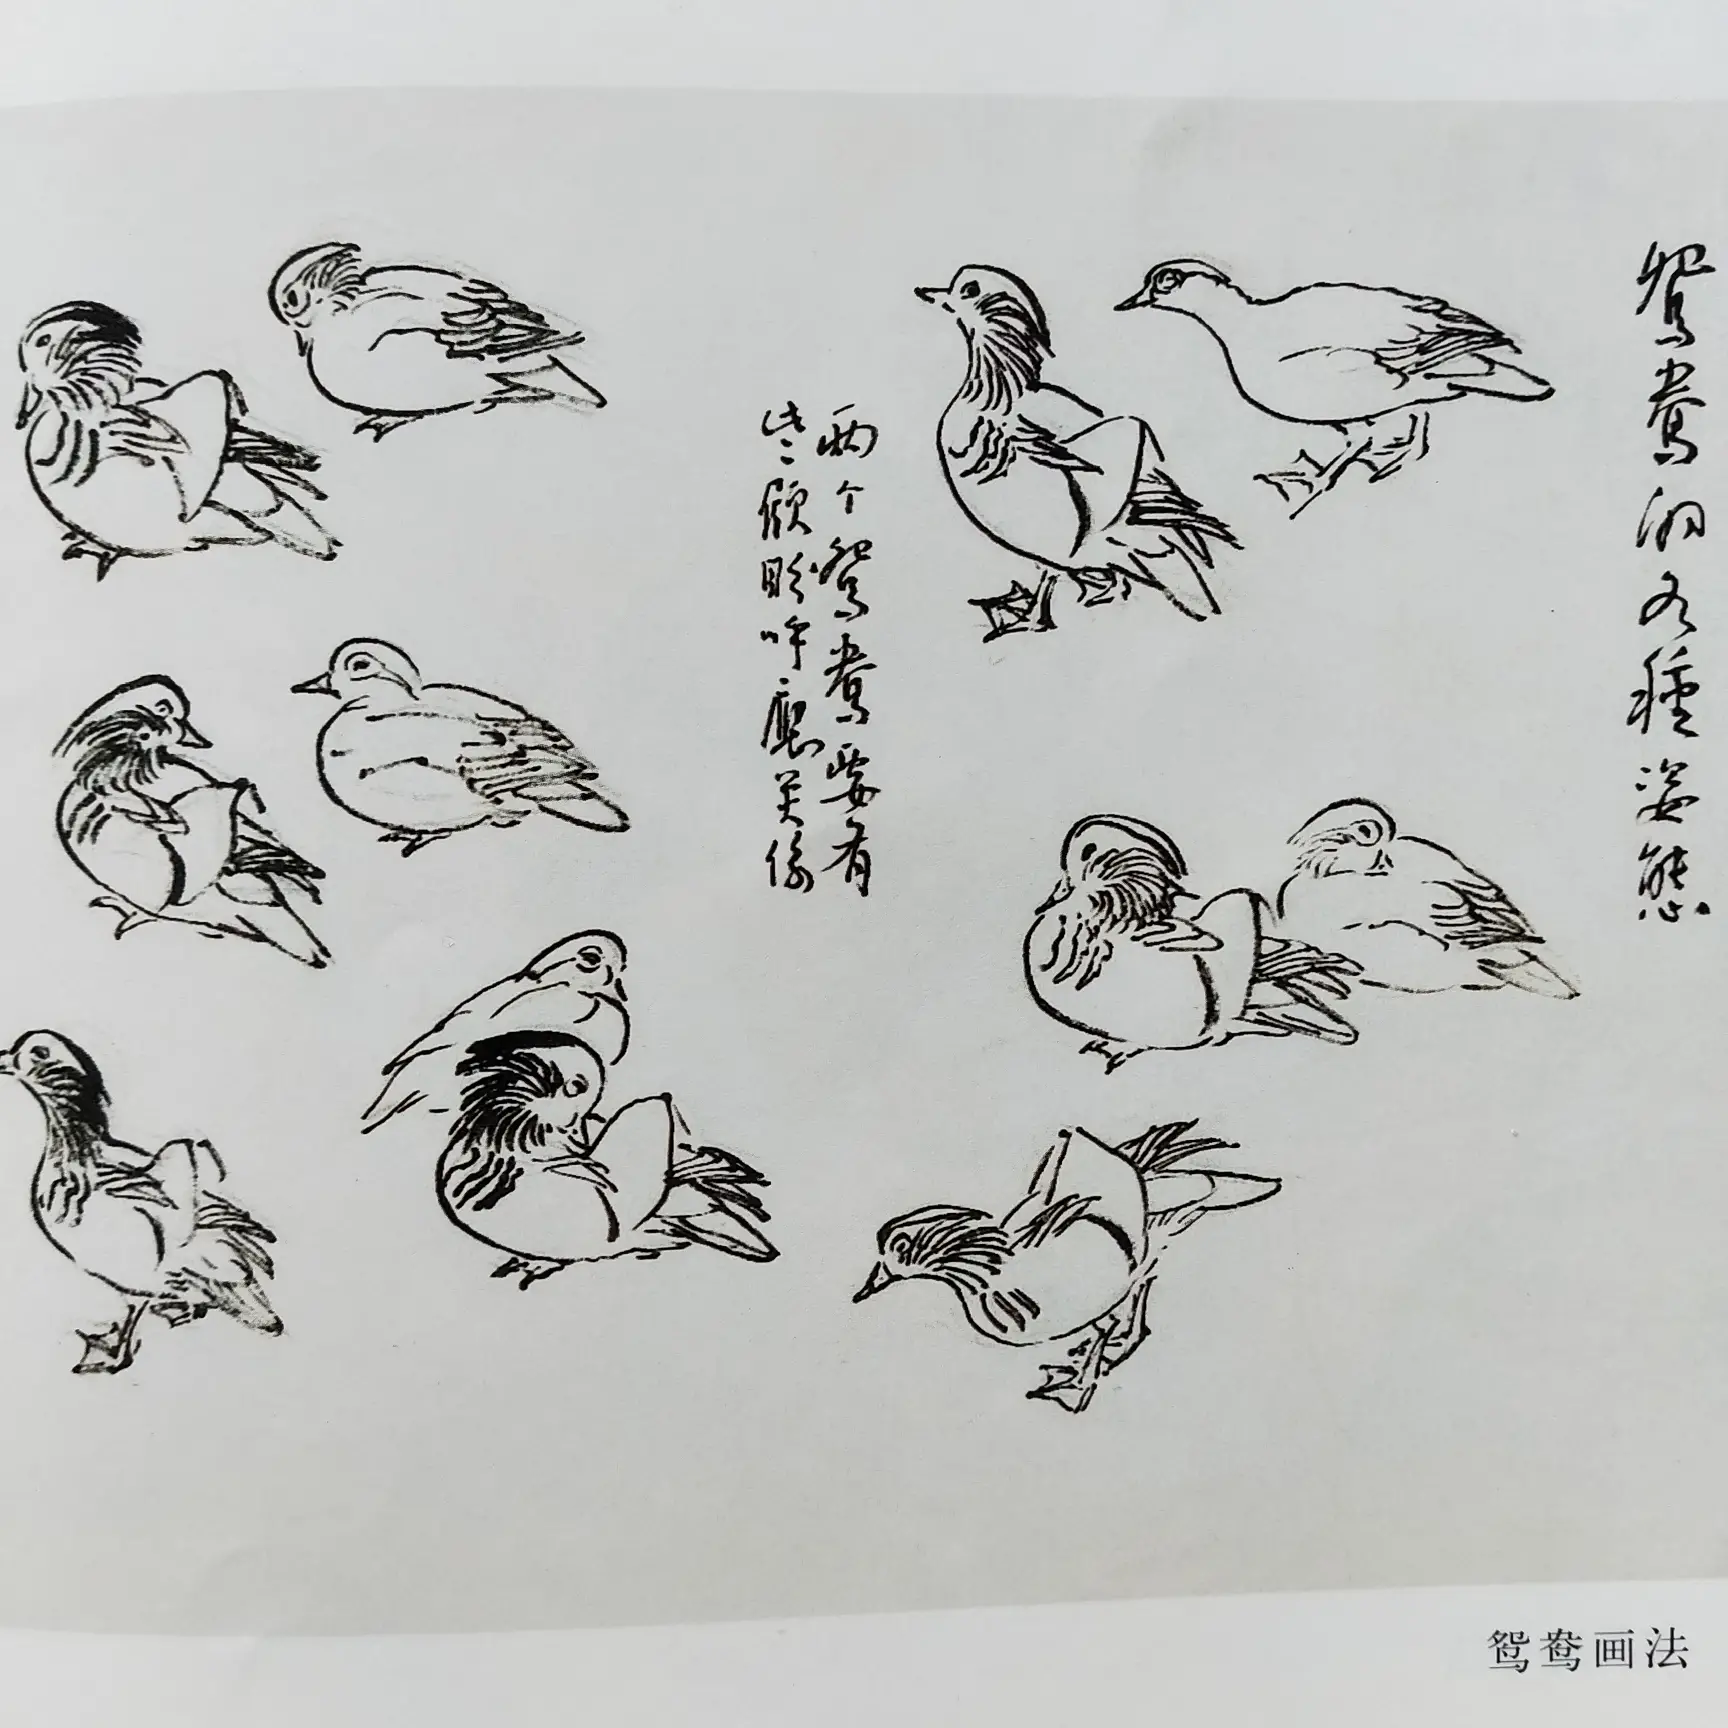 鸳鸯的各種姿態
两个鸳鸯要有
些顾盼呼應关係
鸳鸯画法